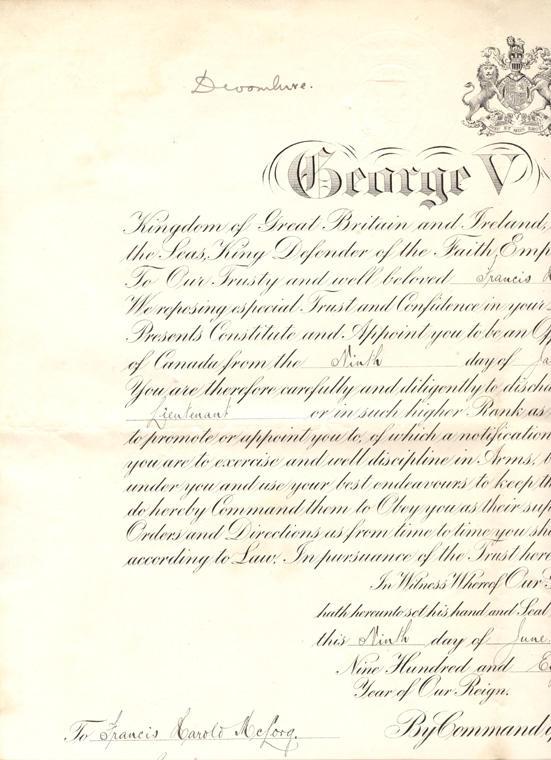 Devonshire.
George V
Kingdom of Great Britain and Ireland,
the Seas, King Defender of the Faith, Emp
To Our Trusty and well beloved Francis
We reposing especial Trust and Confidence in your
Presents Constitute and Appoint you to be an Of
of Canada from the Ninth day of Ja
You are therefore carefully and diligently to discha
Lieutenant or in such higher Rank as
to promote or appoint you to, of which a notification
you are to exercise and well discipline in Arms,
under you and use your best endeavours to keep th
do hereby Command them to Obey you as their sup
Orders and Directions as from time to time you sh
according to Law. In pursuance of the Trust here
In Witness Whereof Our
hath hereunto set his hand and Seal
this Ninth day of June
Nine Hundred and E
Year of Our Reign.
To Francis Harold McLorg.
By Command